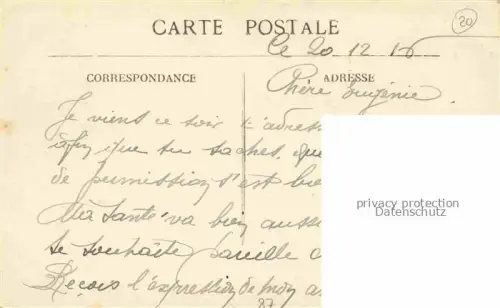 20
CARTE POSTALE
Le 20 12 16
CORRESPONDANCE
ADRESSE
Chère Eugénie
Je viens ce soir t'adres
afin que tu saches que
de permission s'est bie
Ma santé va bien aussi
te souhaite pareille
Reçois l'expression de mon a
87
privacy protection
Datenschutz